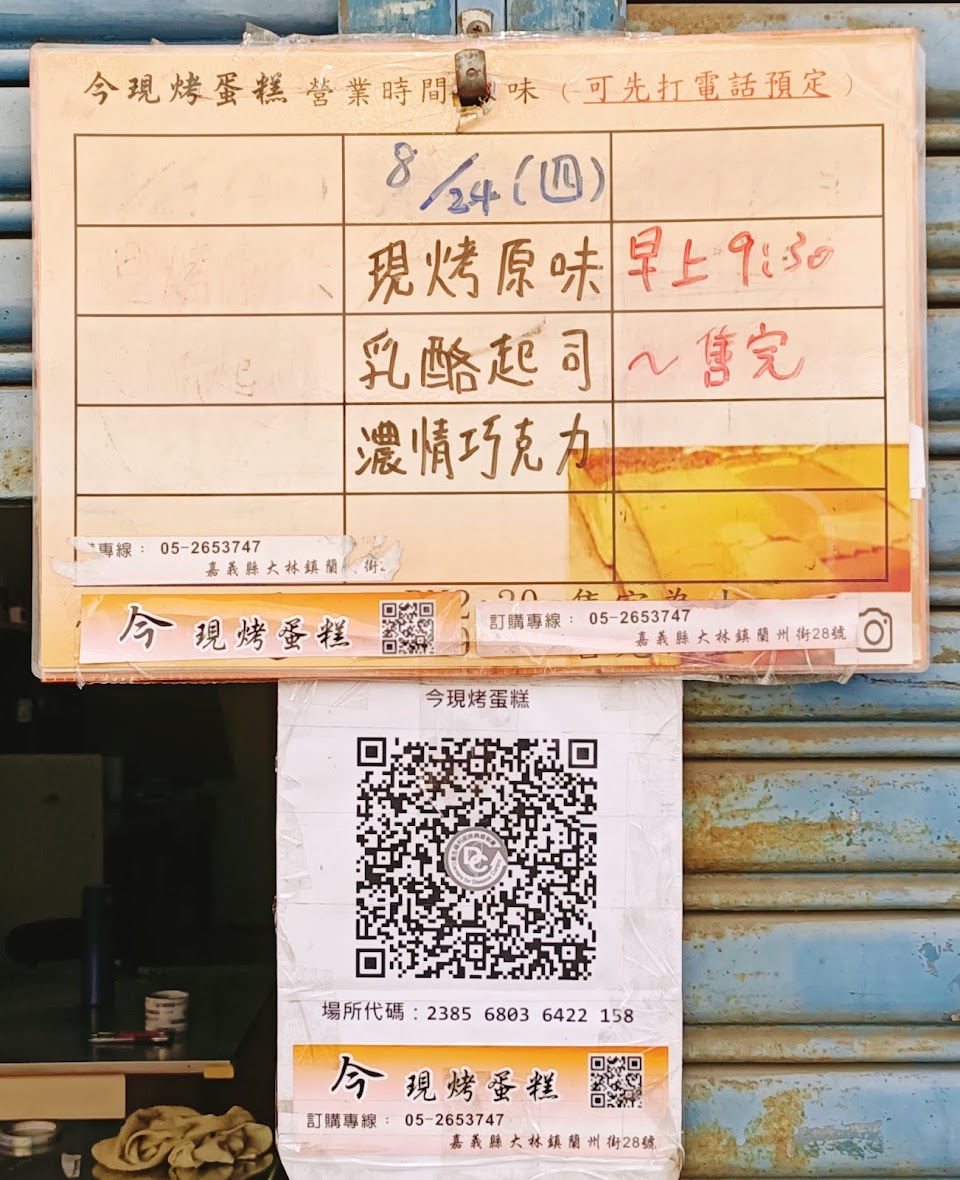 今現烤蛋糕 營業時間 味（可先打電話預定）
8/24(四)
現烤原味 早上 9:30
乳酪起司 ~售完
濃情巧克力
專線： 05-2653747
嘉義縣大林鎮蘭 街
今 現烤蛋糕
訂購專線： 05-2653747
嘉義縣大林鎮蘭州街28號
今現烤蛋糕
場所代碼：2385 6803 6422 158
今 現烤蛋糕
訂購專線： 05-2653747
嘉義縣大林鎮蘭州街28號